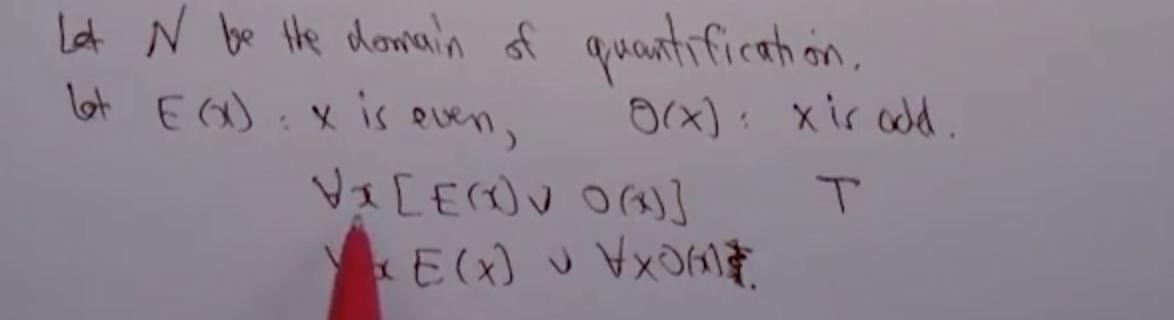 Let N be the domain of quantification.
let E(x) : x is even, O(x) : x is odd.
∀x [E(x) ∨ O(x)] T
∀x E(x) ∨ ∀x O(x).